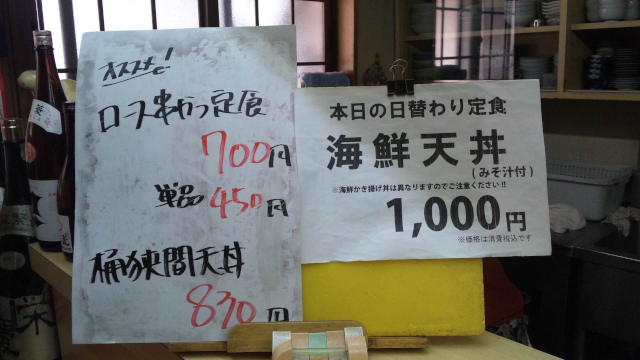 オススメ!
ロース串かつ定食
700円
単品 450円
桶狭間天丼
870円
本日の日替わり定食
海鮮天丼
(みそ汁付)
※海鮮かき揚げ丼は異なりますのでご注意ください!!
1,000円
※価格は消費税込です